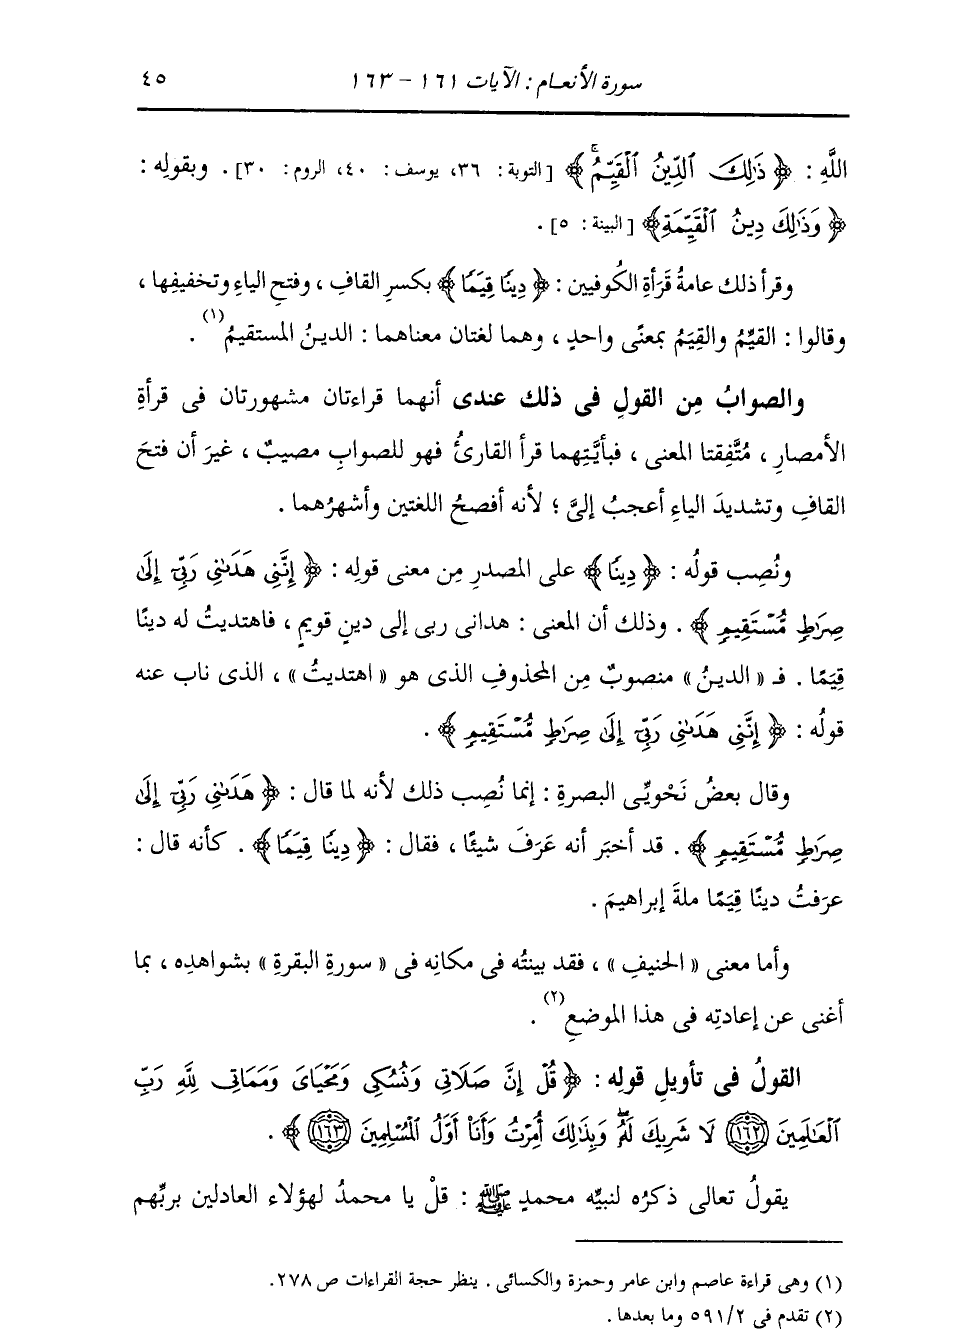 سورة الأنعام : الآيات ١٦١ - ١٦٣ ٤٥
اللَّهِ : ﴿ ذَٰلِكَ ٱلدِّينُ ٱلْقَيِّمُۚ ﴾ [ التوبة : ٣٦، يوسف : ٤٠، الروم : ٣٠] . وبقولِه :
﴿ وَذَٰلِكَ دِينُ ٱلْقَيِّمَةِ ﴾ [ البينة : ٥] .
وقرأ ذلك عامةُ قَرَأةِ الكُوفيين : ﴿ دِينًا قِيَمًا ﴾ بكسرِ القافِ ، وفتحِ الياءِ وتخفيفِها ،
وقالوا : القيِّمُ والقِيَمُ بمعنًى واحدٍ ، وهما لغتان معناهما : الدينُ المستقيمُ (١) .
والصوابُ مِن القولِ فى ذلك عندى أنهما قراءتان مشهورتان فى قرأةِ
الأمصارِ ، مُتَّفِقتا المعنى ، فبأيَّتِهما قرأ القارئُ فهو للصوابِ مصيبٌ ، غيرَ أن فتحَ
القافِ وتشديدَ الياءِ أعجبُ إلىَّ ؛ لأنه أفصحُ اللغتين وأشهرُهما .
ونُصِب قولُه : ﴿ دِينًا ﴾ على المصدرِ مِن معنى قولِه : ﴿ إِنَّنِى هَدَىٰنِى رَبِّىٓ إِلَىٰ
صِرَٰطٍ مُّسْتَقِيمٍ ﴾ . وذلك أن المعنى : هدانى ربى إلى دينٍ قويمٍ ، فاهتديتُ له دينًا
قِيَمًا . فـ « الدينُ » منصوبٌ مِن المحذوفِ الذى هو « اهتديتُ » ، الذى ناب عنه
قولُه : ﴿ إِنَّنِى هَدَىٰنِى رَبِّىٓ إِلَىٰ صِرَٰطٍ مُّسْتَقِيمٍ ﴾ .
وقال بعضُ نَحْويِّى البصرةِ : إنما نُصِب ذلك لأنه لما قال : ﴿ هَدَىٰنِى رَبِّىٓ إِلَىٰ
صِرَٰطٍ مُّسْتَقِيمٍ ﴾ . قد أخبَر أنه عَرَفَ شيئًا ، فقال : ﴿ دِينًا قِيَمًا ﴾ . كأنه قال :
عرَفتُ دينًا قِيَمًا ملةَ إبراهيمَ .
وأما معنى « الحنيفِ » ، فقد بينتُه فى مكانِه فى « سورةِ البقرةِ » بشواهدِه ، بما
أغنى عن إعادتِه فى هذا الموضعِ (٢) .
القولُ فى تأويلِ قولِه : ﴿ قُلْ إِنَّ صَلَاتِى وَنُسُكِى وَمَحْيَاىَ وَمَمَاتِى لِلَّهِ رَبِّ
ٱلْعَٰلَمِينَ ١٦٢ لَا شَرِيكَ لَهُۥۖ وَبِذَٰلِكَ أُمِرْتُ وَأَنَا۠ أَوَّلُ ٱلْمُسْلِمِينَ ١٦٣ ﴾ .
يقولُ تعالى ذكرُه لنبيِّه محمدٍ ﷺ : قلْ يا محمدُ لهؤلاء العادلين بربِّهم
(١) وهى قراءة عاصم وابن عامر وحمزة والكسائى . ينظر حجة القراءات ص ٢٧٨.
(٢) تقدم فى ٥٩١/٢ وما بعدها .